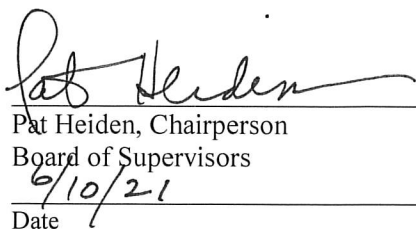 Pat Heiden
Pat Heiden, Chairperson
Board of Supervisors
6/10/21
Date